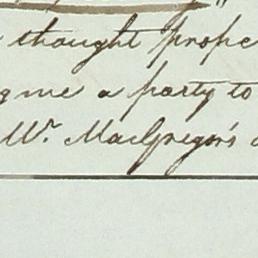 thought prope
g me a party to
Mr. MacGregor's